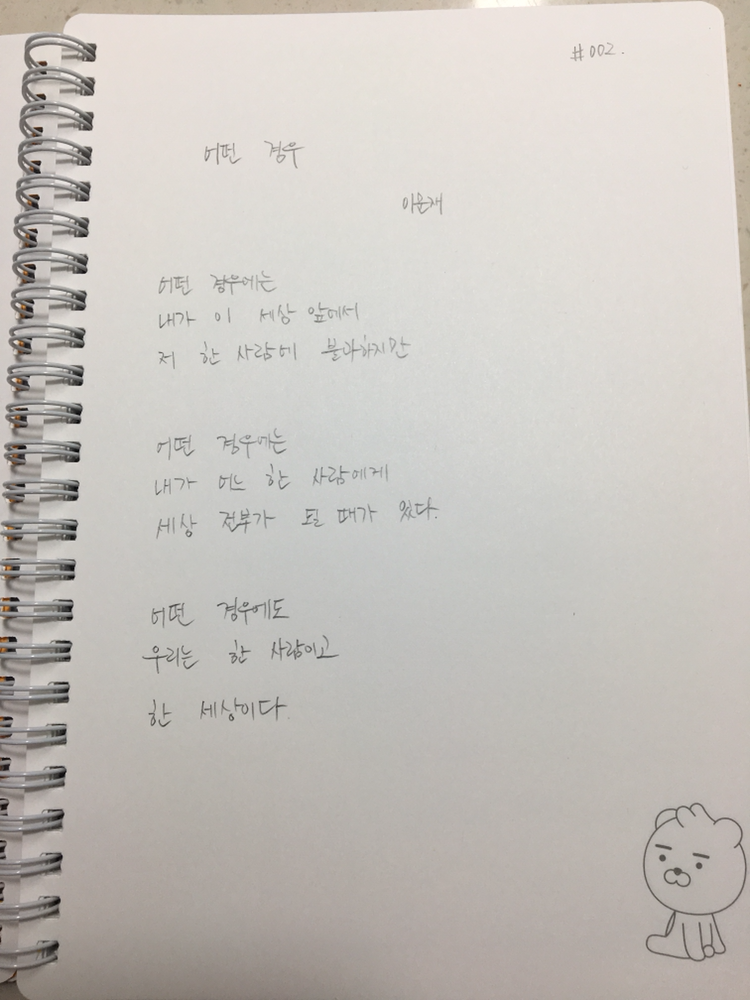 #002.
어떤 경우
이문재
어떤 경우에는
내가 이 세상 앞에서
저 한 사람에 불과하지만
어떤 경우에는
내가 어느 한 사람에게
세상 전부가 될 때가 있다.
어떤 경우에도
우리는 한 사람이고
한 세상이다.